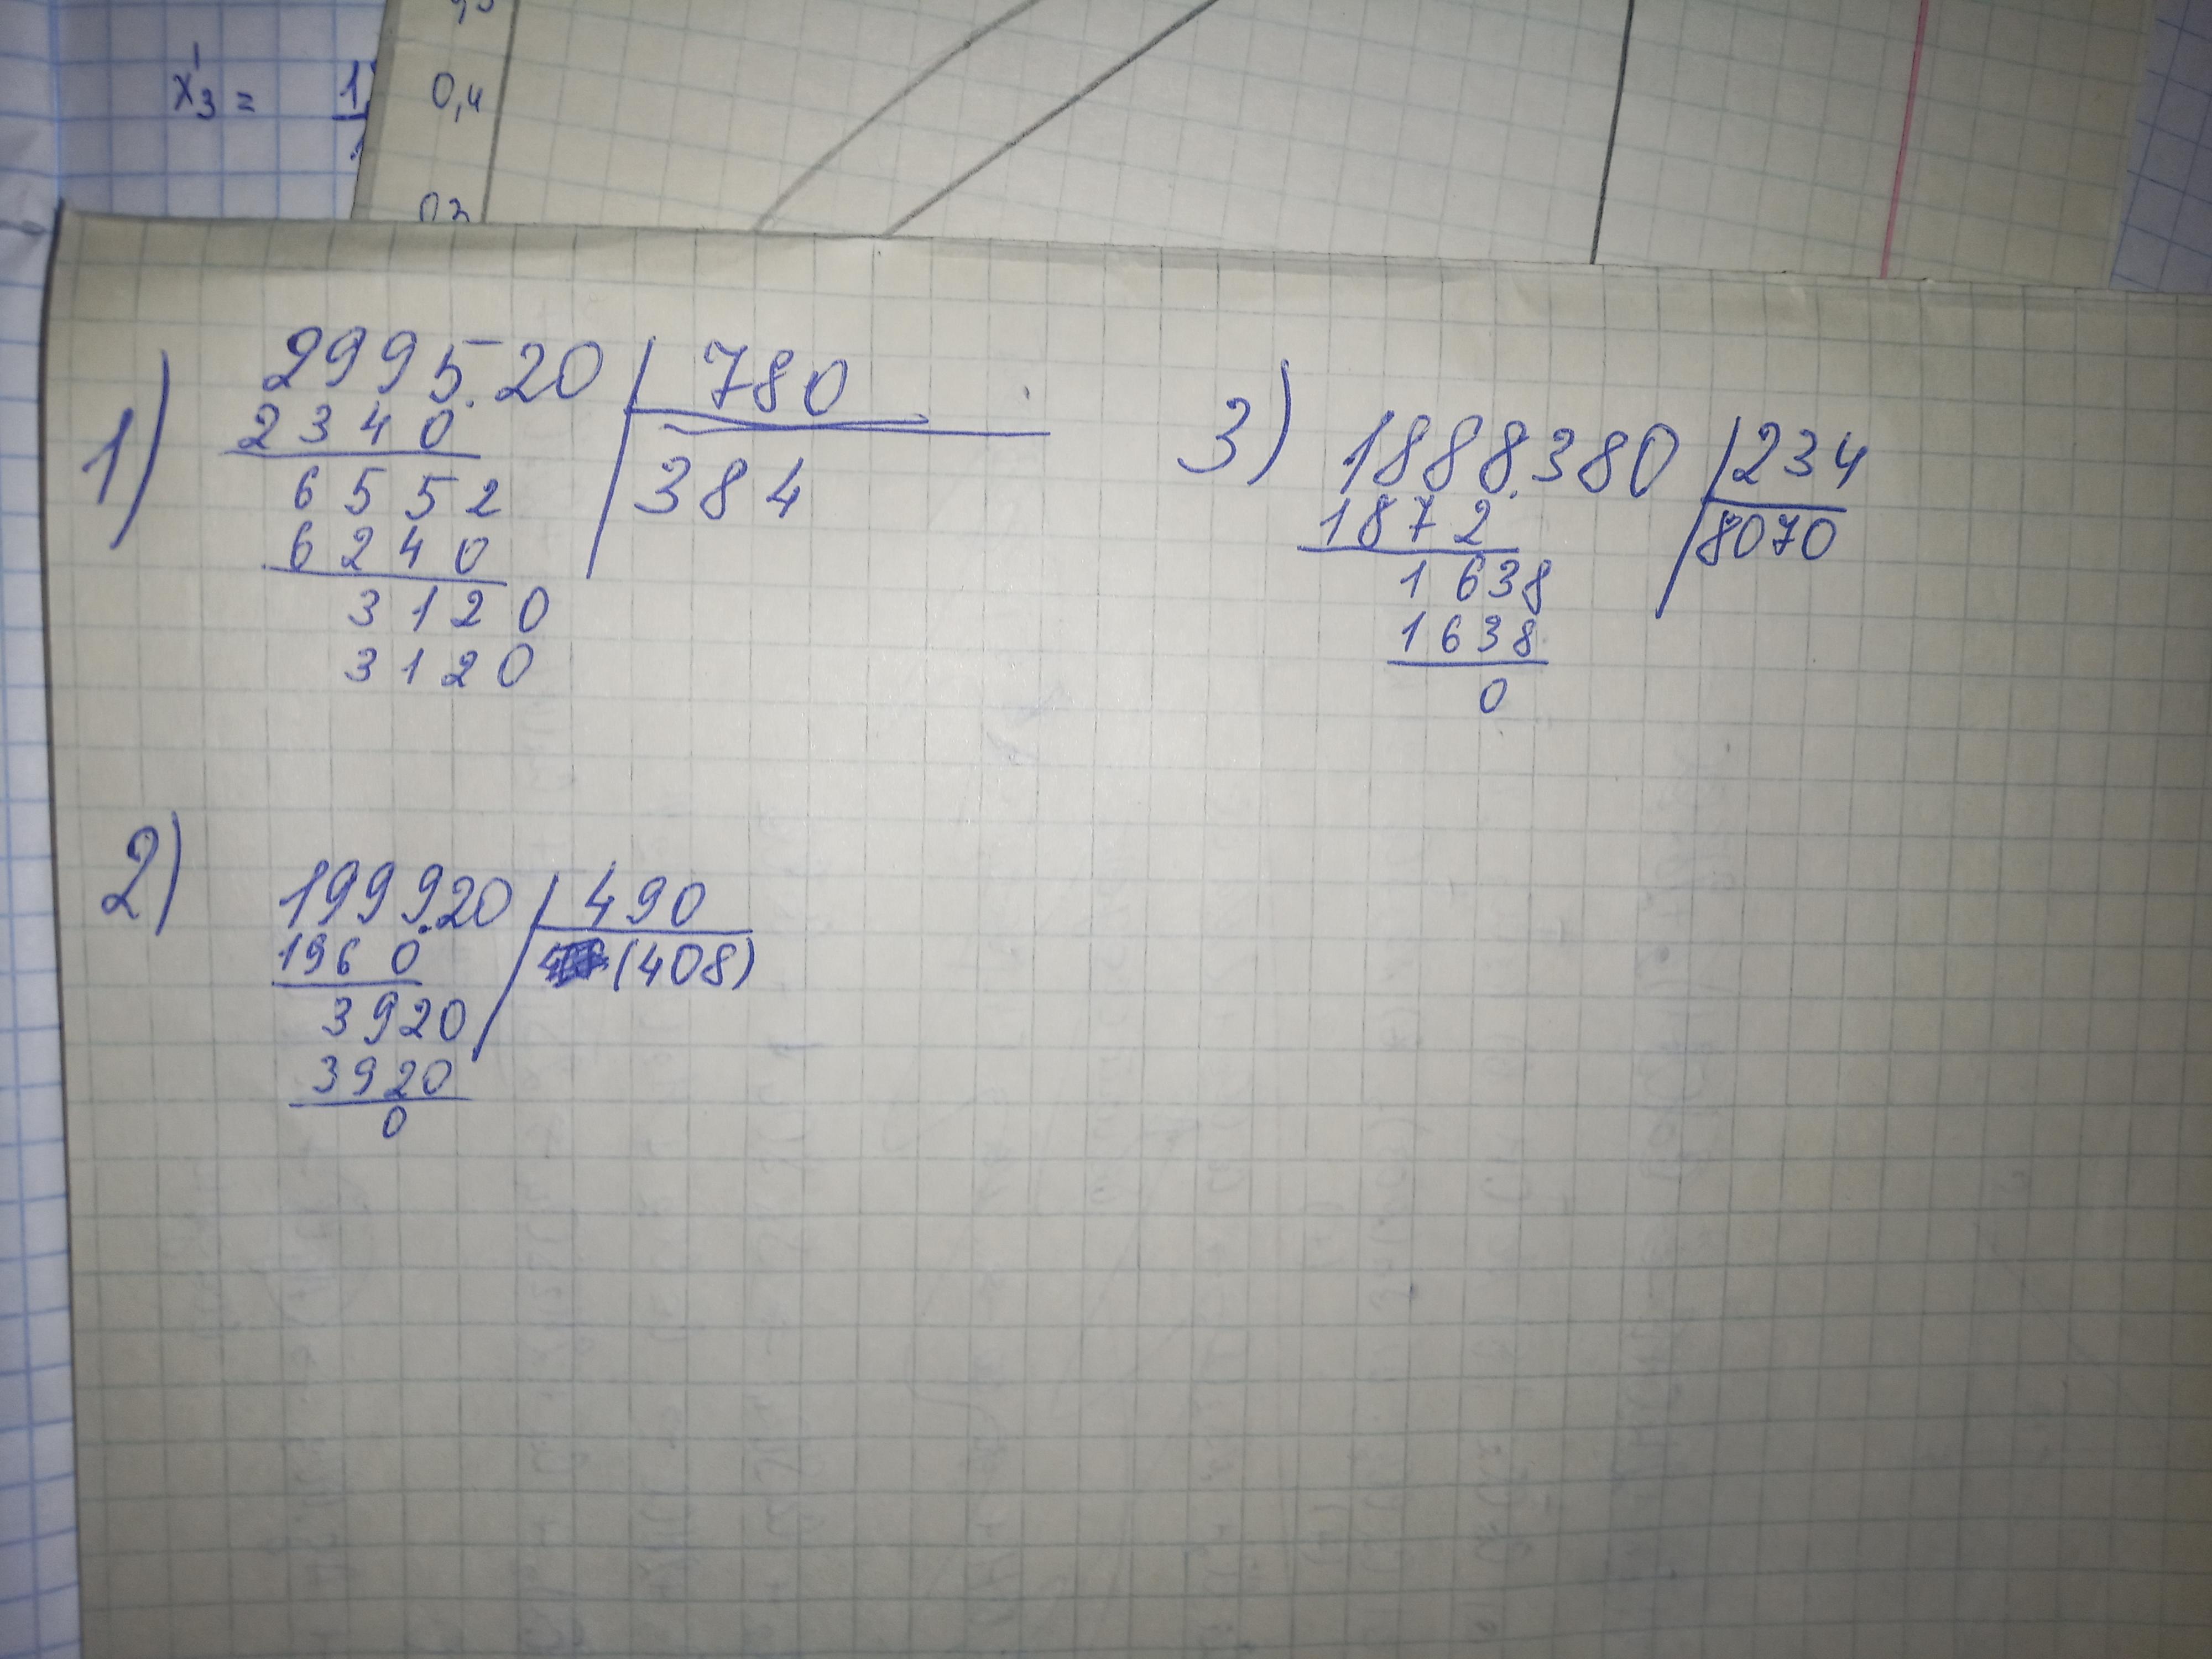 x'3 =
0,4
1)
2995.20 780
2340 384
6552
6240
3120
3120
3)
1888.380 234
1872 8070
1638
1638
0
2)
1999.20 490
1960 (408)
3920
3920
0